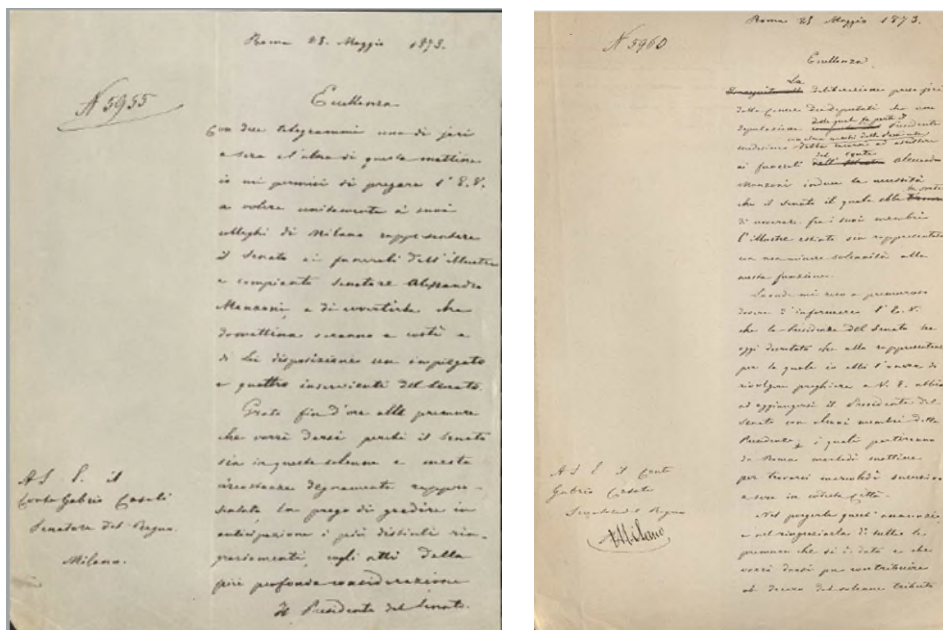 Roma 25. Maggio 1873.
N 5955
Eccellenza
Con due telegrammi uno di jeri
a sera e l'altro di questa mattina
io mi permisi di pregare l'E.V.
a volere unitamente a' suoi
colleghi di Milano rappresentare
il Senato ai funerali dell'illustre
e compianto Senatore Alessandro
Manzoni, e di avvertirla che
domattina saranno a costì a
di Lei disposizione un impiegato
e quattro inservienti del Senato.
Grato fin d'ora alle premure
che vorrà darsi perché il Senato
sia in queste solenne e mesta
circostanza degnamente rappre-
sentato, La prego di gradire in
anticipazione i più distinti rin-
graziamenti cogli atti della
più profonda considerazione
Il Presidente del Senato.
A S. E. il
Conte Gabrio Casati
Senatore del Regno.
Milano.
Roma 25 Maggio 1873.
N 5960
Eccellenza.
La
deliberazione presa jeri
dalla Camera dei deputati che una
delle quali fa parte il
deputazione Presidente
medesimo della ad assistere
del Conte
ai funerali Alessandro
Manzoni induce la necessità
che il Senato il quale ebbe
di annoverare fra i suoi membri
l'illustre estinto sia rappresentato
con non minore solennità alla
mesta funzione.
Laonde mi reco a premuroso
dovere d'informare l'E.V.
che la Presidenza del Senato ha
oggi deliberato che alla rappresentanza
per la quale io ebbi l'onore di
rivolgere preghiera a V. E. abbia
ad aggiungersi il Presidente del
Senato con alcuni membri della
Presidenza, i quali partiranno
da Roma martedì mattina
per trovarsi mercoledì
a sera in codesta Città.
Nel porgerle quest'annunzio
e nel ringraziarla di tutte le
premure che si è data e che
vorrà darsi per contribuire
al decoro del solenne tributo
A S. E. il Conte
Gabrio Casati
Senatore del Regno
Milano